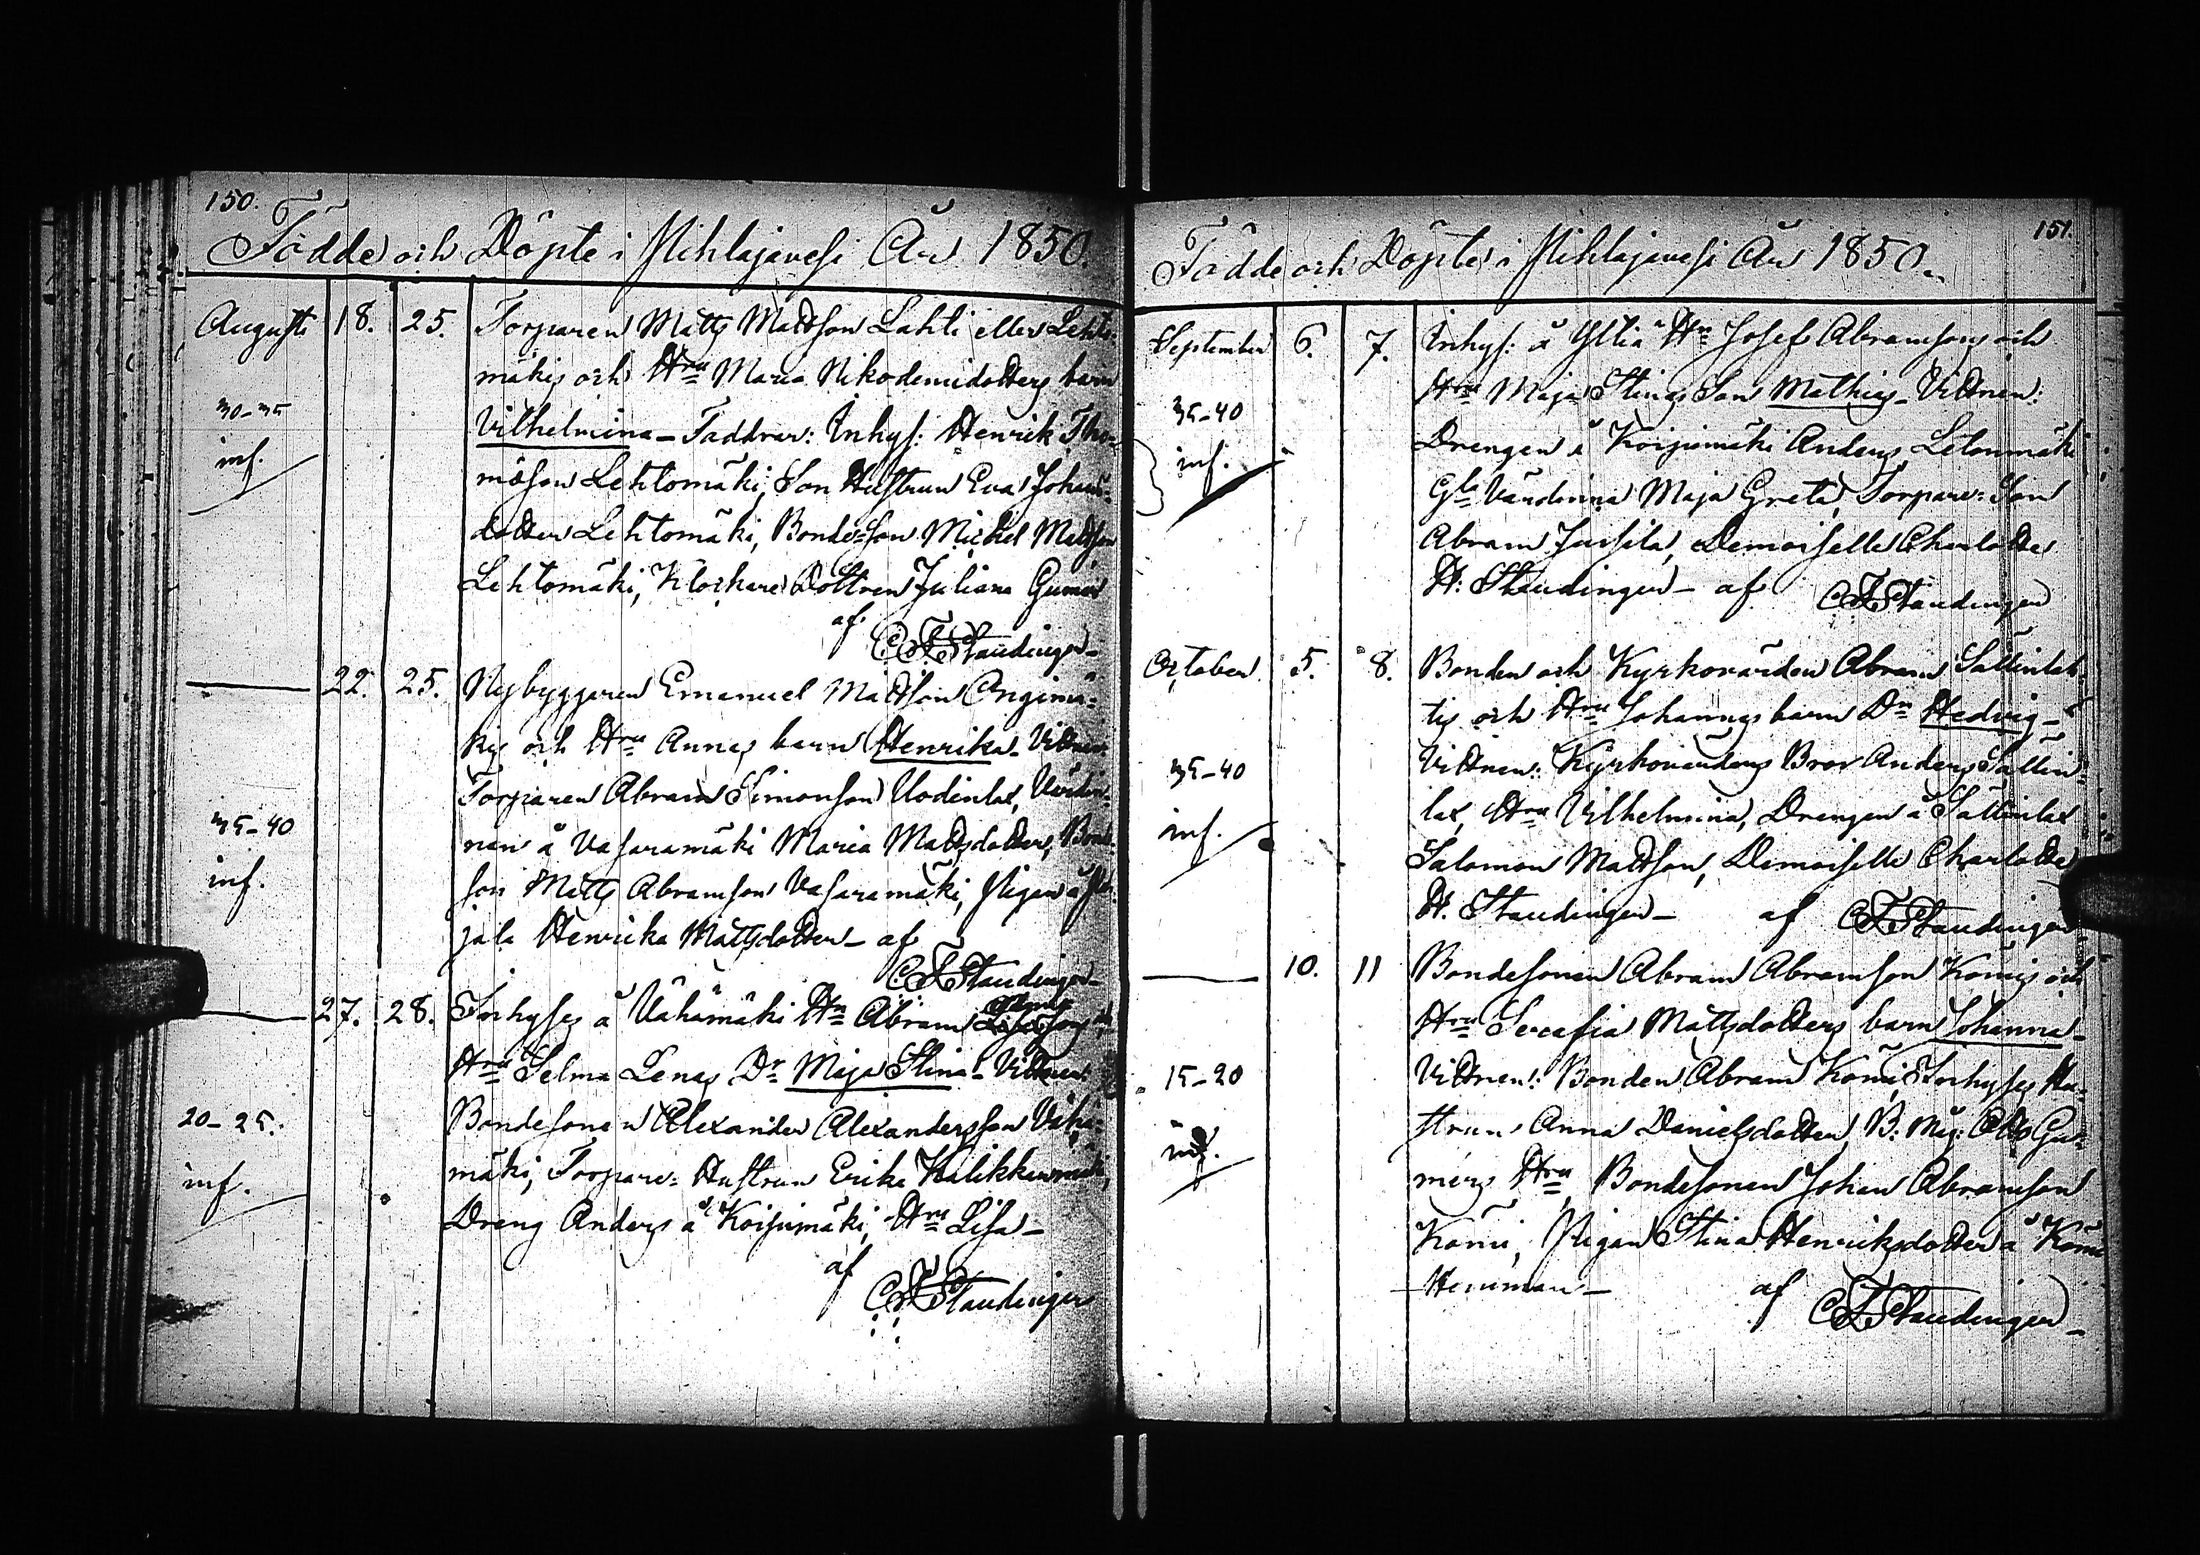 150.
Födde och Döpte i Pihlajavesi År 1850.
Augusti 18. 25. Torparen Matts Mattsson Lahti eller Lehto-
mäkis och Hru Maria Nikodemidotters barn
30-35
Vilhelmina - Faddrar: Inhys: Henrik Tho-
inf.
mäson Lehtomäki, Son Hustrun Eva Johans-
dotter Lehtomäki, Bonde-son Michel Mattsson
Lehtomäki, Klockare Dottren Juliana Gumer
af
CFStaudinger
22. 25. Nybyggaren Emanuel Mattson
och Hru Annas barn Henrika - Vittnen:
Torparen Abram Simonson Uodinlax, Värdin-
35-40
nan å Vasaramäki Maria Mattsdotter, Bonde-
inf.
son Matts Abramson Vasaramäki, Pigan å
jala Henrika Mattsdotter - af
CFStaudinger
27. 28. Inhyses å Vähämäki Hn Abram
Hru Selma Lenas Dr Maja Stina - Vittnen:
20-25.
Bondesonen Alexander Alexandersson Vähä-
mäki, Torpare-Hustrun Erika
inf.
Dreng Anders å Koisumäki, Hru Lisa -
af
CFStaudinger
151.
Födde och Döpte i Pihlajavesi År 1850.
September 6. 7. Inhys: å Yliä Hn Josef Abramsons och
Hru Maja Stinas Son Mathias - Vittnen:
35-40
Drengen å Koisumäki Anders Letonmäki
inf.
Gla Värdinna Maja Greta, Torpare-Son
Abram Jussila, Demoiselle Charlotte
H: Staudinger - af CFStaudinger
October 5. 8. Bonden och Kyrkovärden Abram Sällinlah-
tis och Hru Johannas barn Dr Hedvig -
35-40
Vittnen: Kyrkovärdens Bror Anders Sällin-
inf.
lax, Hru Vilhelmina, Drengen å Sällinlax
Salomon Mattson, Demoiselle Charlotte
H. Staudinger - af CFStaudinger
10. 11 Bondesonen Abram Abramson Komis och
Hru Serafia Mattsdotters barn Johanna -
15-20
Vittnen: Bonden Abram Komi, Inhyses Hu-
inf.
strun Anna Danielsdotter, B: Mäg: Gu-
mers Hru Bondesonen Johan Abramson
Komi, Pigan Stina Henriksdotter å Komi
Hemman - af CFStaudinger